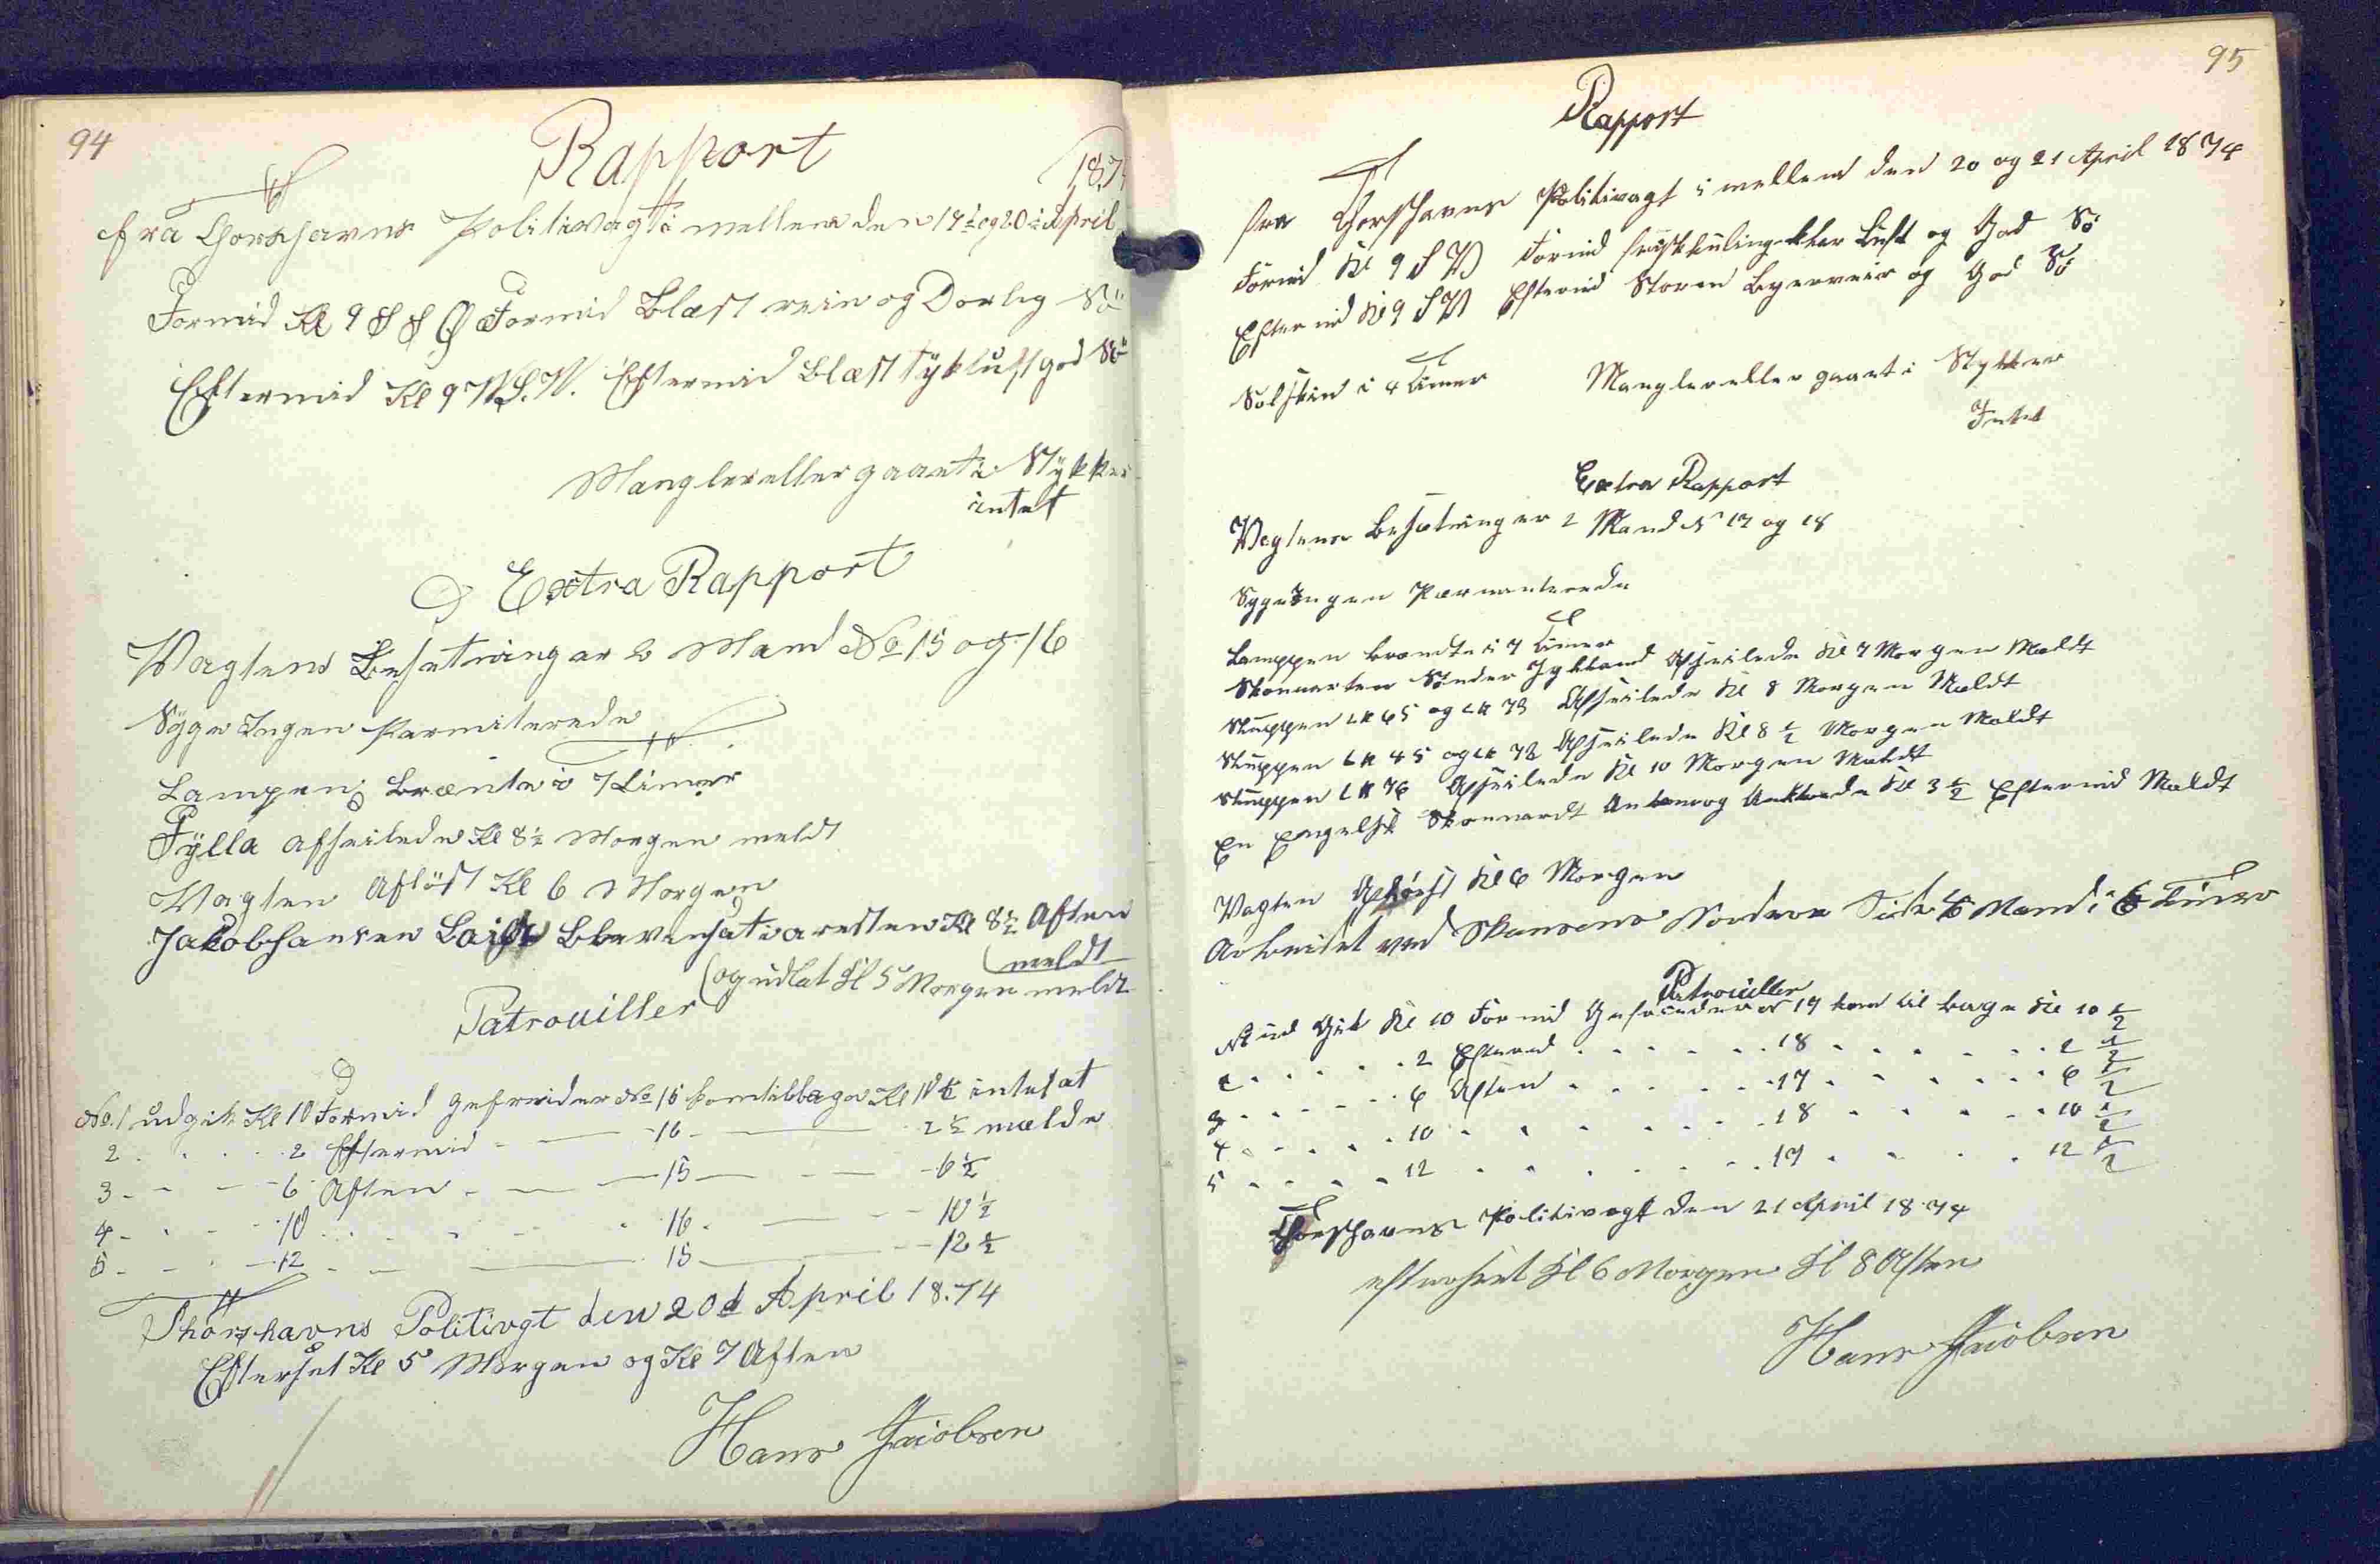 94
Rapport
1874
fra Thorshavns Politivagt i mellem den 19 og 20 April
Formid Kl 9 S S Ø Formid Blæst rein og Dorlig Sö
Eftermid Kl 9 W.S.W. Eftermid Blæst tÿkluft god Sö
Mangler eller gaaet i Stÿkker
intet
Extra Rapport
Vagtens Besetning er 2 Mand No 15 og 16
Sÿge Ingen Parmiterede
Lampen Brænte i 7 Timer
Fÿlla afseilede Kl 8½ Morgen meldt
Vagten Aflöst Kl 6 Morgen
Jakob Hansen Blev insat i aresten Kl 8½ Aften
meldt
og udlat Kl 5 Morgen meldt
Patrouiller
No. 1 udgik Kl 10 Formid Gefreider No 15 kom tilbage Kl 10½ intet at
2 - - - 2 Eftermid - - 16 - - 2½ melde
3 - - - 6 Aften - - 15 - - 6½
4 - - - 10 - - 16 - - 10½
5 - - - 12 - - 15 - - 12½
Thorshavns Politivgt den 20d April 18.74
Efterset Kl 5 Morgen og Kl 7 Aften
Hans Jacobsen
95
Rapport
fra Thorshavns Politivagt i mellem den 20 og 21 April 1874
Formid Kl 9 S W Formid friskkuling klar Luft og God Sö
Eftermid Kl 9 S W Eftermid Storm Byerveir og God Sö
Solskin i 4 Timer Mangler eller gaaet i Stykker
Intet
Extra Rapport
Vagtens Besætning er 2 Mand N 17 og 18
Syge Ingen Parmanterede
Lampen brændte i 7 Timer
Skonnarten Sönder Jylland Afseilede Kl 7 Morgen Meldt
Sluppen LK 65 og LK 73 Afseilede Kl 8 Morgen Meldt
Sluppen LK 45 og LK 72 Afseilede Kl 8½ Morgen Meldt
Sluppen LK 76 Afseilede Kl 10 Morgen Meldt
En Engelsk Skonnardt Ankom og Ankrede Kl 3½ Eftermid Meldt
Vagten Aflöst Kl 6 Morgen
Arbeidet ved Skansens Nordre Side 5 Mand i 6 Timer
Patrouiller
N 1 ud Gik Kl 10 Formid Gefreider N 17 kom til bage Kl 10½
2 . . . . 2 Eftermid . . . . 18 . . . . 2½
3 . . . . 6 Aften . . . . 17 . . . . 6½
4 . . . . 10 . . . . 18 . . . . 10½
5 . . . . 12 . . . . 17 . . . . 12½
Thorshavns Politivagt den 21 April 18.74
efterset Kl 6 Morgen Kl 8 Aften
Hans Jacobsen